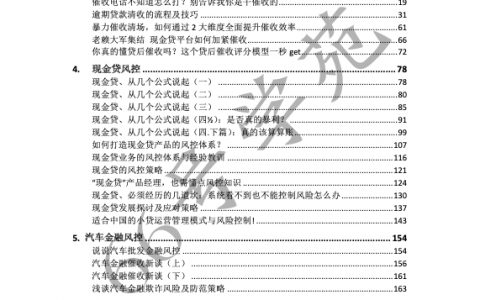 催收电话不知道怎么打？别告诉我你是于催收的 19
逾期贷款清收的流程及技巧 31
暴力催收清场，如何通过 2 大维度全面提升催收效率 61
老赖大军集结 现金贷平台如何加紧催缴 66
你真的懂贷后催收吗？这个贷后催收评分模型一秒 get 72
4. 现金贷风控 78
现金贷、从几个公式说起（一） 78
现金贷、从几个公式说起（二） 80
现金贷、从几个公式说起（三） 85
现金贷、从几个公式说起（四½）：是否真的暴利？ 91
现金贷、从几个公式说起（四.下篇）：真的该算算账 99
如何打造现金贷产品的风控体系？ 107
现金贷业务的风控体系与经验教训 116
现金贷的风控策略 121
“现金贷”产品经理，也需懂点风控知识 124
现金贷、必须经历的几道坎：系统看不到也不能控制风险怎么办 130
现金贷发展探讨及应对策略 137
适合中国的小贷运营管理模式与风险控制! 143
5. 汽车金融风控 154
说说汽车批发金融风控 154
汽车金融催收新谈（上） 156
汽车金融催收新谈（下） 161
浅谈汽车金融欺诈风险及防范策略 163
66号学苑